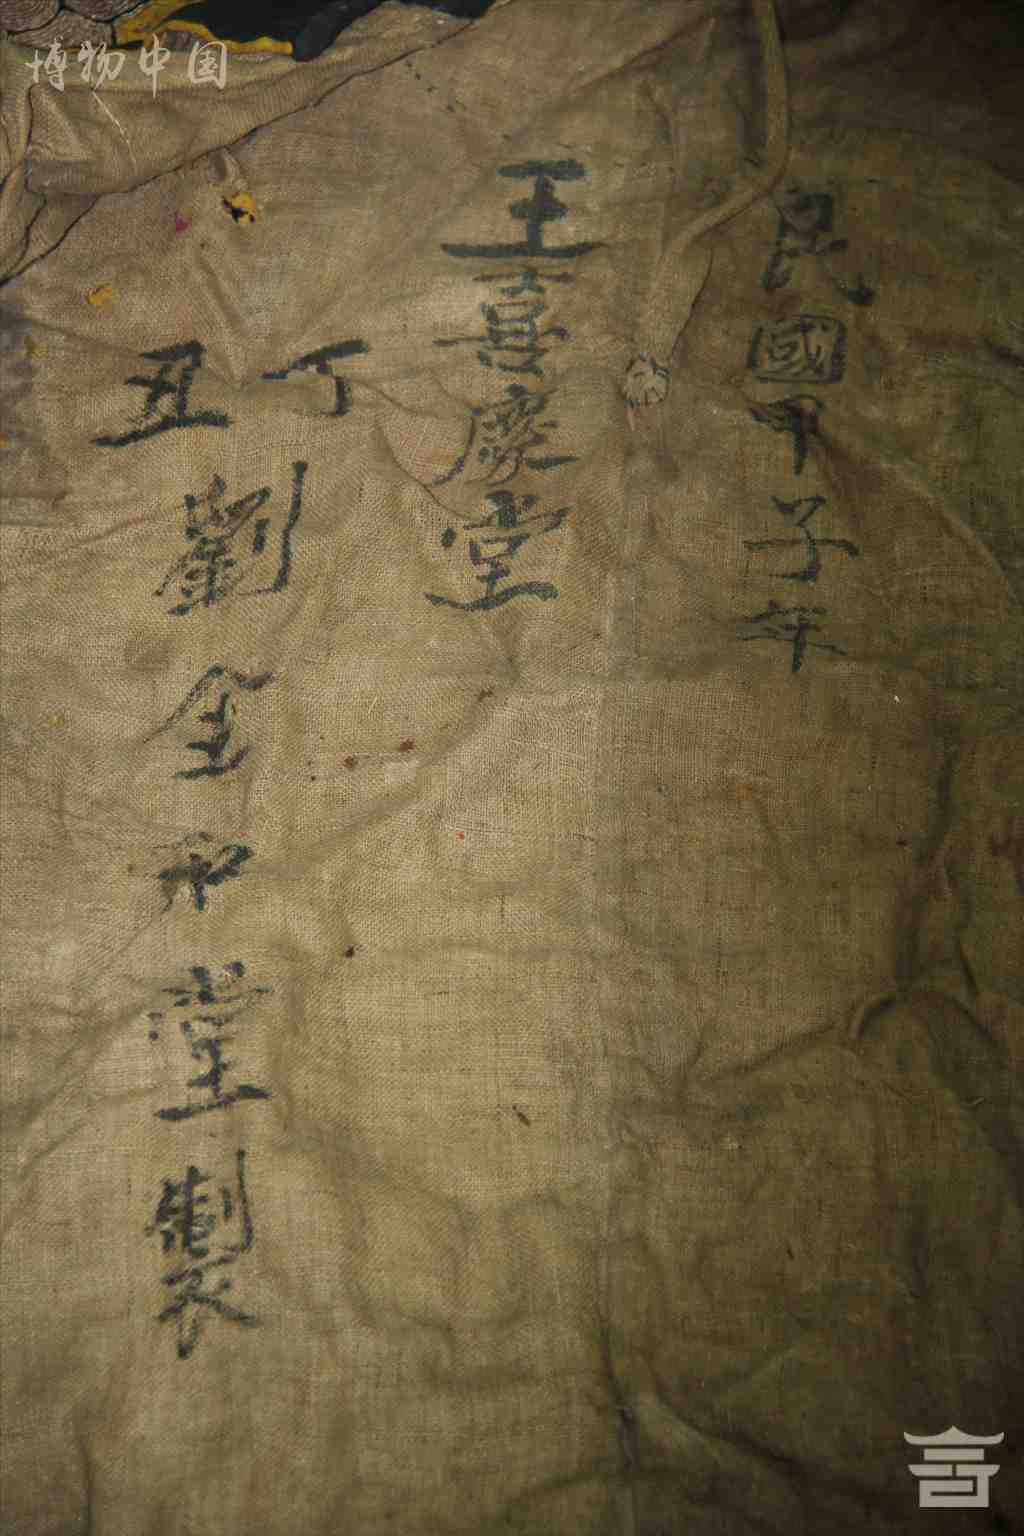 博物中国
民國甲子年
王喜慶堂
丁丑
劉全中堂製